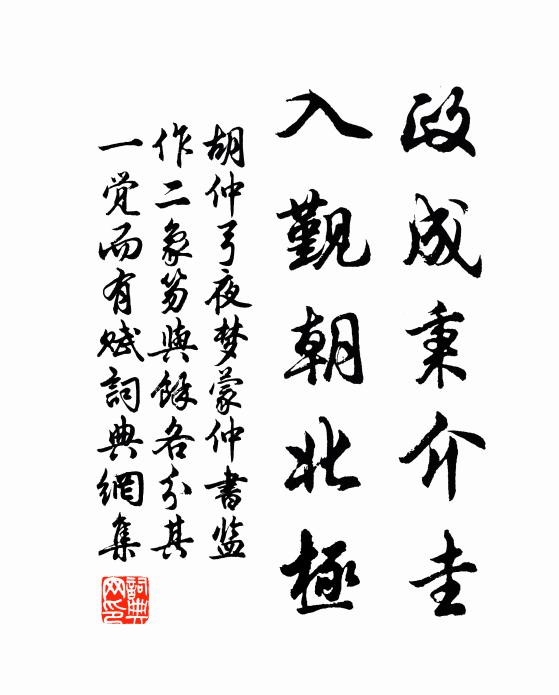 政成秉介圭
入觐朝北極
胡仲弓夜梦蒙仲書监
作二象笏與馀各分其
一覚而有赋詞典網集
詞典网印